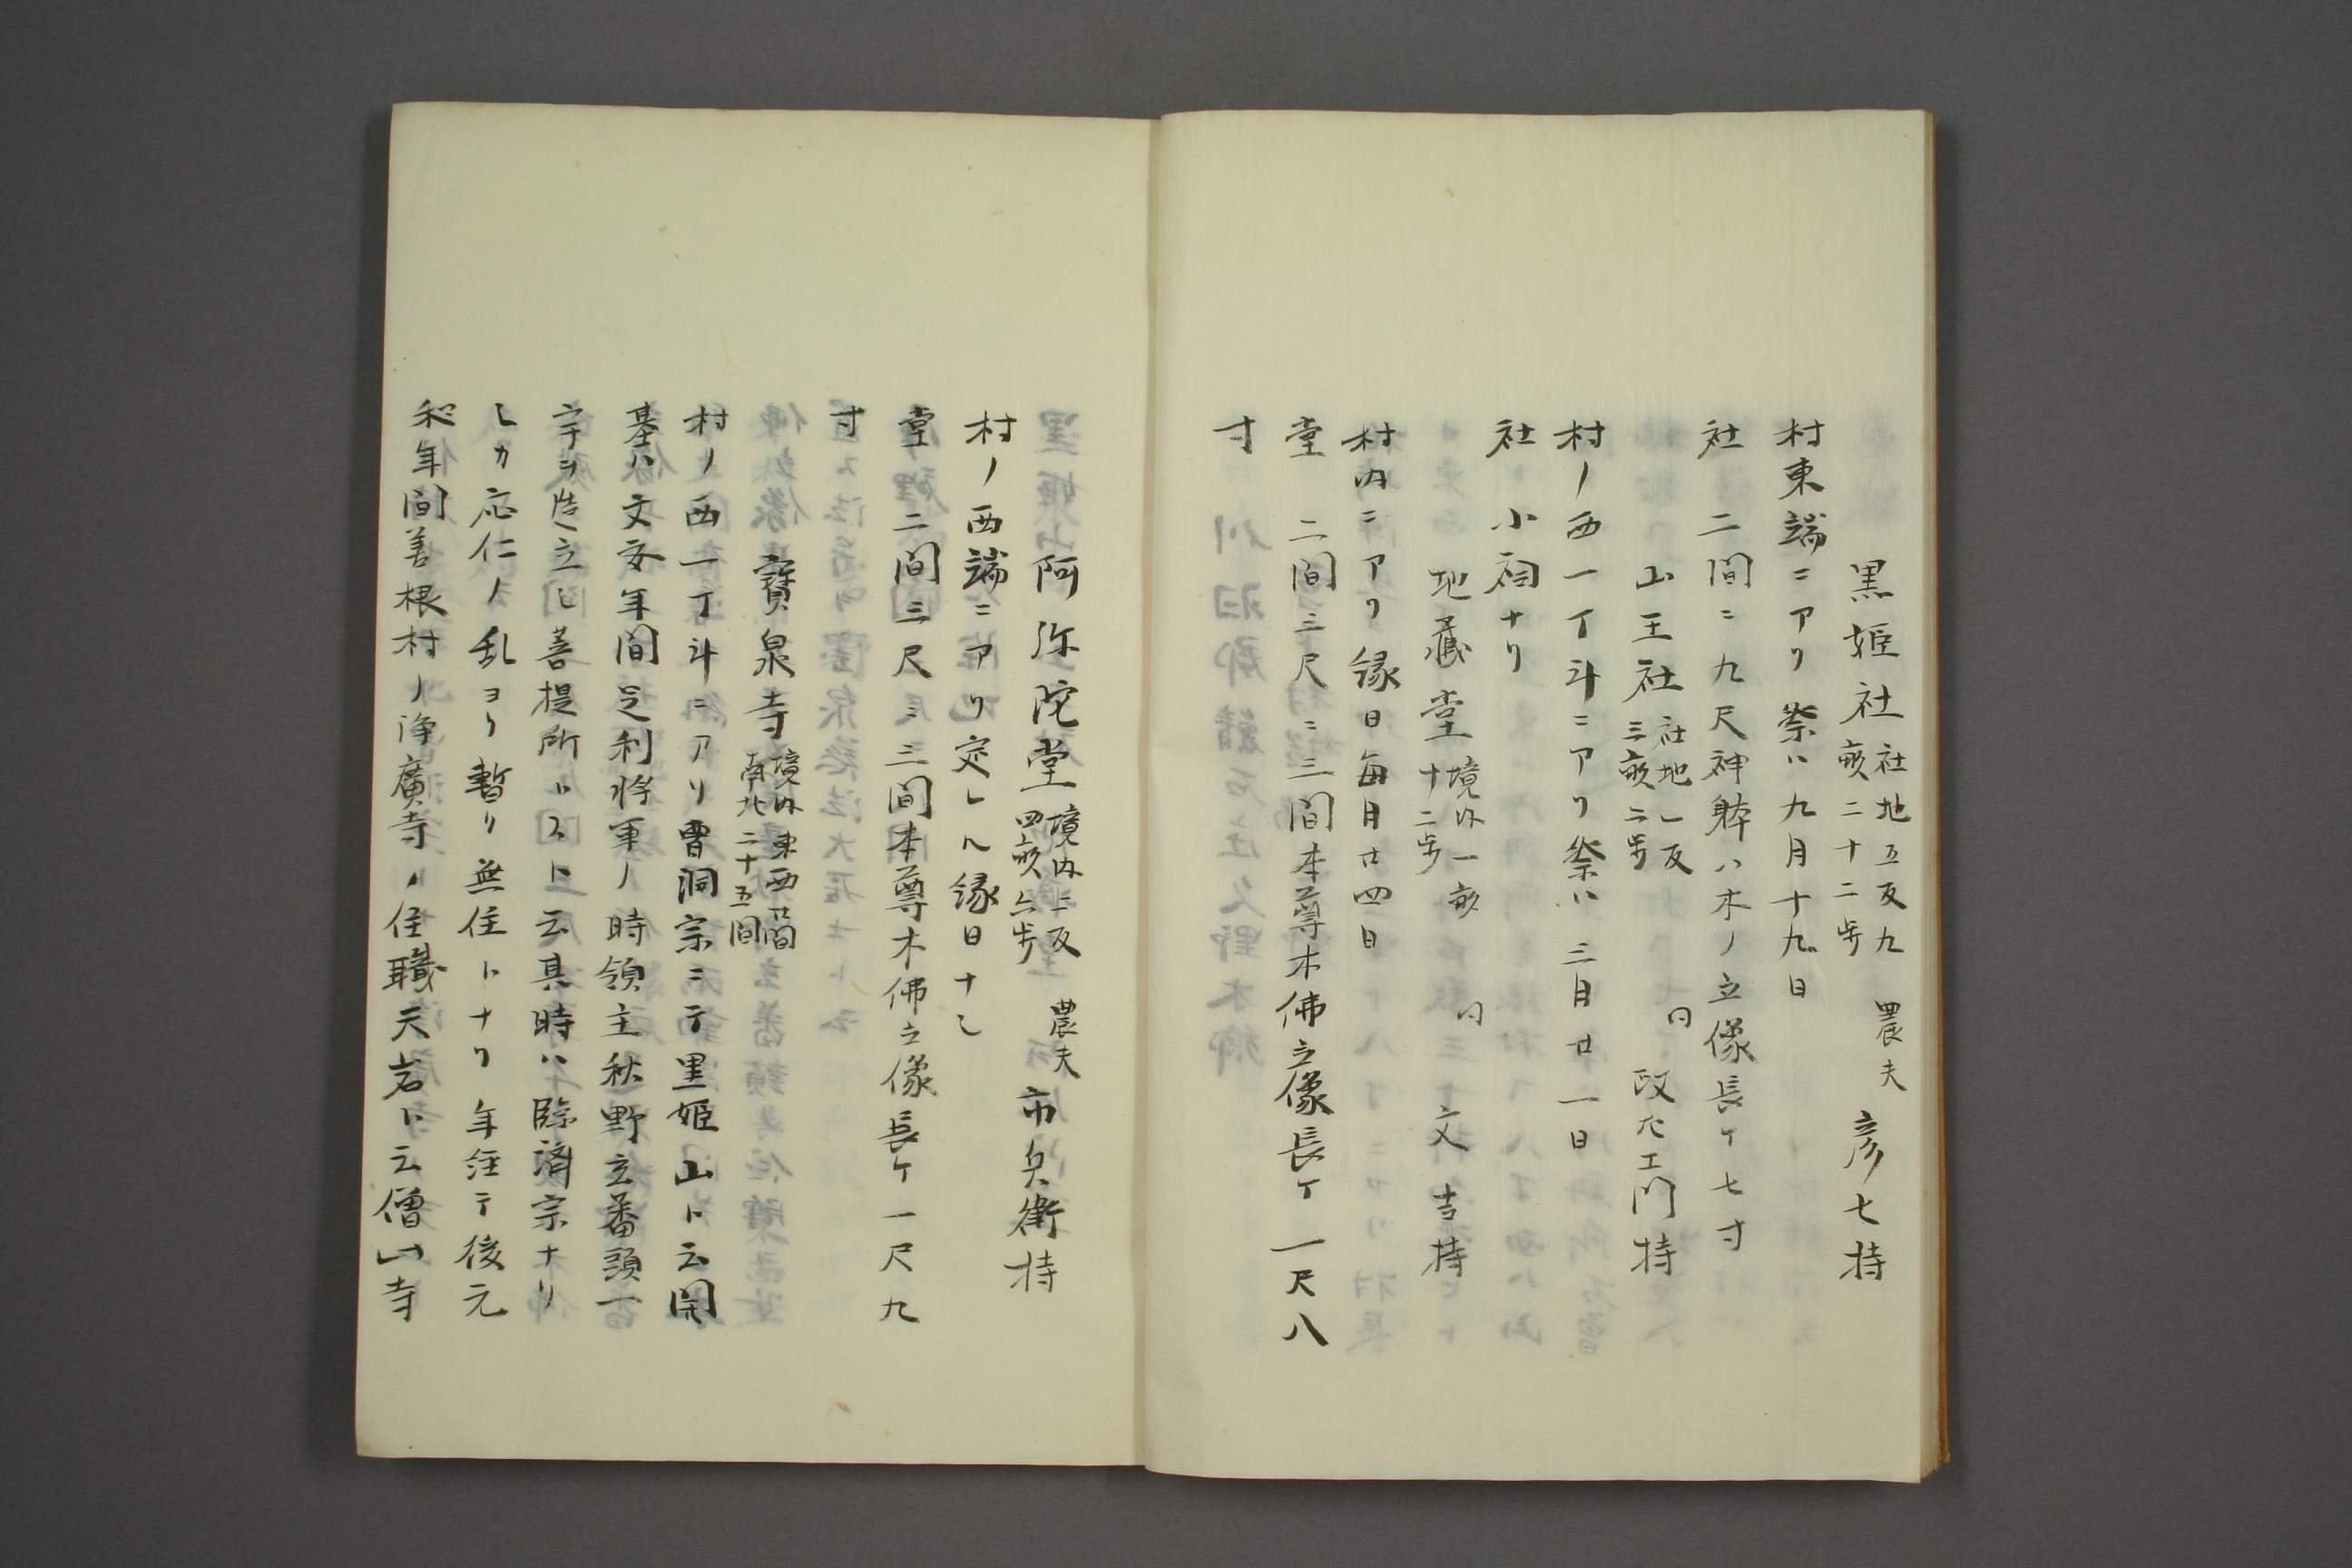 黒姫社 社地五反九畝二十二歩 農夫 彦七持
村東端ニアリ祭ハ九月十九日
社 二間ニ九尺神躰ハ木ノ立像長ケ七寸
山王社 社地一反三畝二歩 同 政右エ門持
村ノ西一丁斗ニアリ祭ハ三月廿一日
社 小祠ナリ
地蔵堂 境内一畝十二歩 同 文吉持
村内ニアリ縁日毎月廿四日
堂 二間三尺ニ三間本尊木佛立像長ケ一尺八
寸
阿弥陀堂 境内二反四畝六歩 農夫 市兵衛持
村ノ西端ニアリ定レル縁日ナシ
堂 二間三尺ニ三間本尊木佛立像長ケ一尺九
寸
寶泉寺 境内東西廿間南北二十五間
村ノ西一丁斗ニアリ曹洞宗ニテ里姫山ト云開
基ハ文安年間足利将軍ノ時領主秋野立番頭一
宇ヲ造立シ菩提所トスト云其時ハ臨濟宗ナリ
シカ応仁ノ乱ヨリ暫リ無住トナリ年経テ後元
和年間善根村ノ浄廣寺ノ住職天岩ト云僧一寺